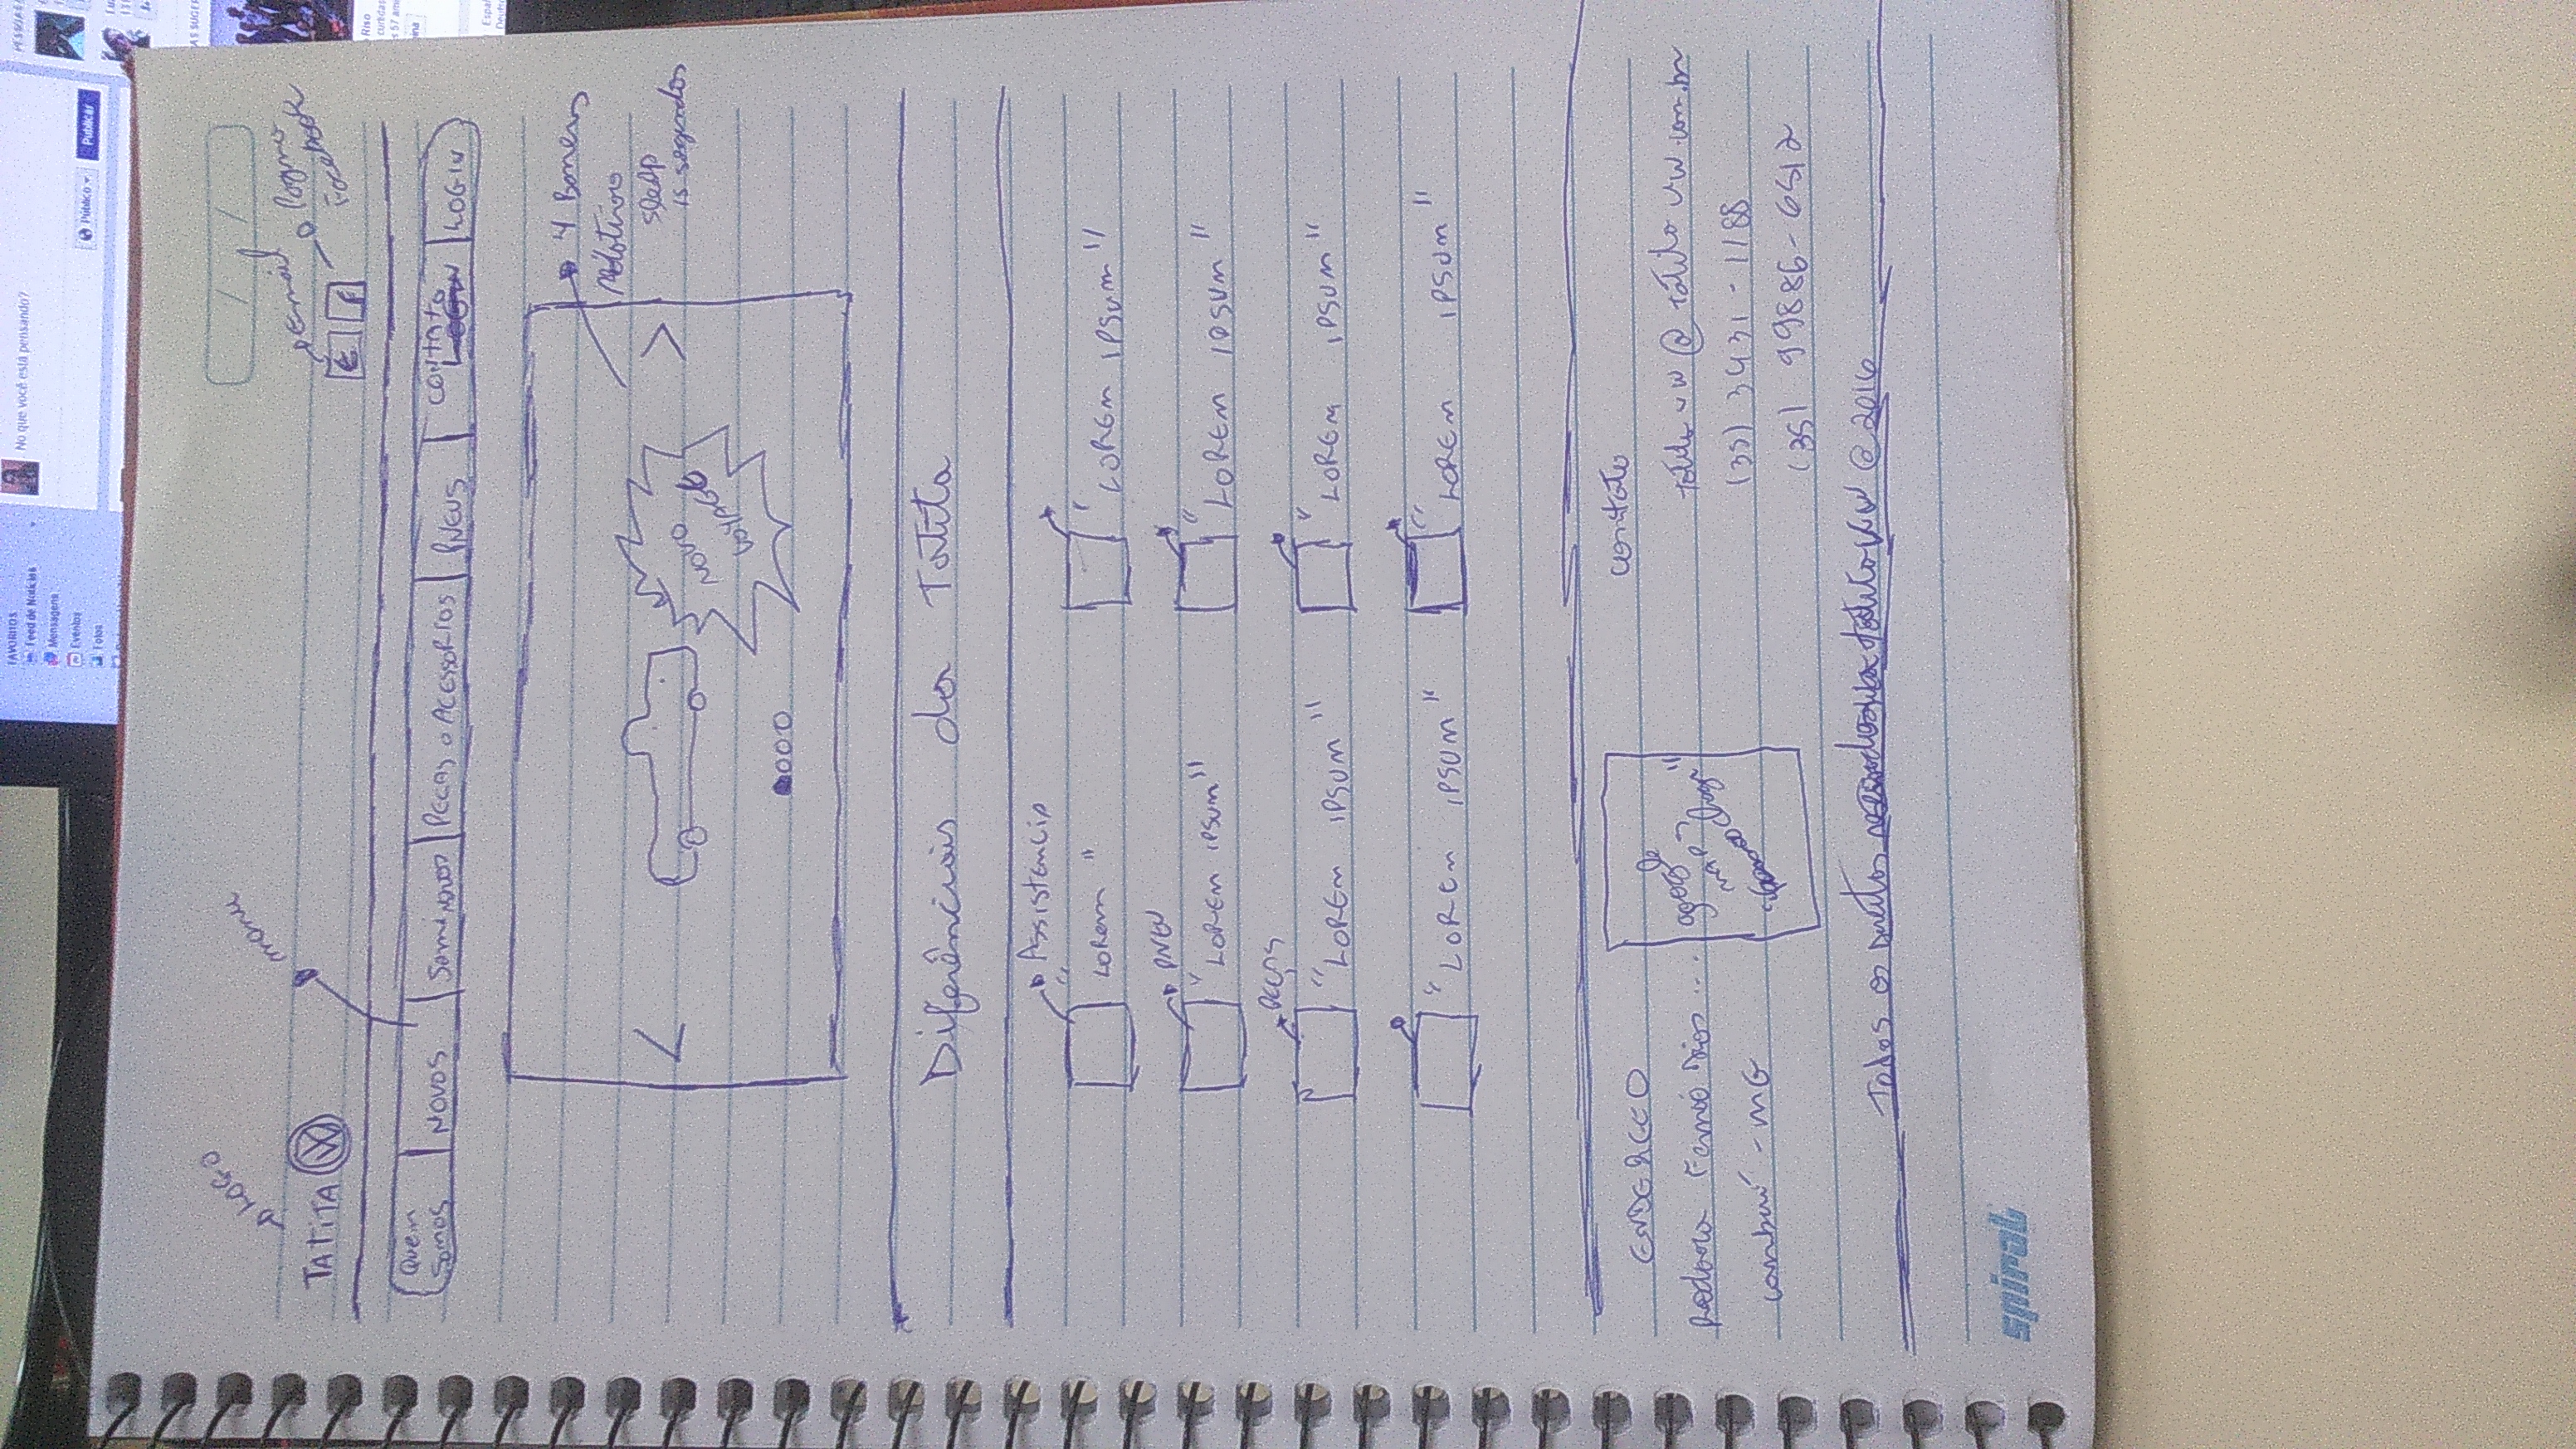 FAVORITOS
Feed de Notícias
Mensagens
Eventos
Fotos
No que você está pensando?
Público
Publicar
Riso
curtidas
LOGO
menu
TATITA VW
Email
Pagina
Facebook
E f
Quem Somos
NOVOS
SemiNOVOS
PEÇAS e ACESSORIOS
PNEUS
contato
LOGIN
4 Baners
Rotativos
sleep
15 segundos
< >
NOVO
VOYAGE
Diferênciais da Tatita
Assistencia
"Lorem"
"LOREM IPSUM"
PNEU
"LOREM IPSUM"
"LOREM IPSUM"
PEÇAS
"LOREM IPSUM"
"LOREM IPSUM"
"LOREM IPSUM"
"LOREM IPSUM"
ENDEREÇO
Rodovia Fernão Dias...
Cambuí - MG
google
MAPS
"como chegar"
contato
tatita vw @ tatita vw.com.br
(35) 3431-1188
(35) 99886-6512
Todos os Direitos tatita VW @ 2016
spiral